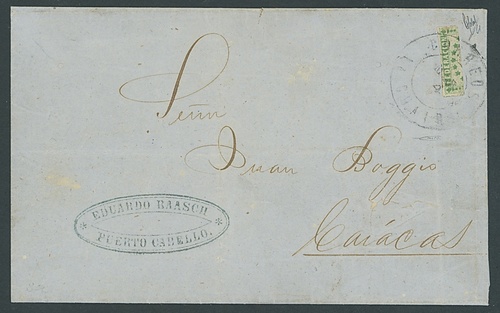 CORREOS
Señor
Juan Boggio
Carácas
* EDUARDO RAASCH *
PUERTO CABELLO.